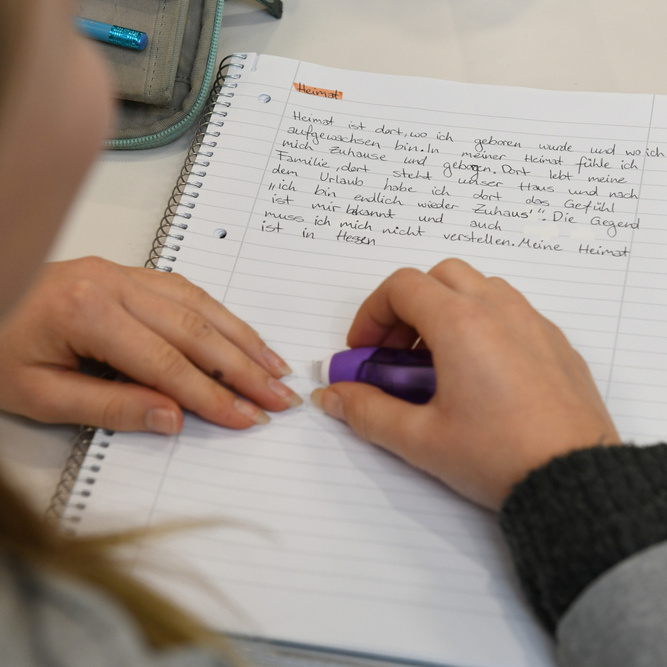 Heimat
Heimat ist dort, wo ich geboren wurde und wo ich
aufgewachsen bin. In meiner Heimat fühle ich
mich Zuhause und geborgen. Dort lebt meine
Familie, dort steht unser Haus und nach
dem Urlaub habe ich dort das Gefühl
„ich bin endlich wieder Zuhaus'“. Die Gegend
ist mir bekannt und auch
muss ich mich nicht verstellen. Meine Heimat
ist in Hessen